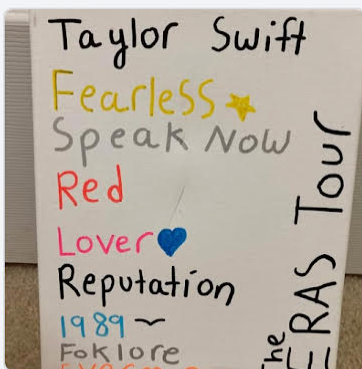 Taylor Swift
Fearless
Speak Now
Red
Lover
Reputation
1989
Foklore
The ERAS Tour